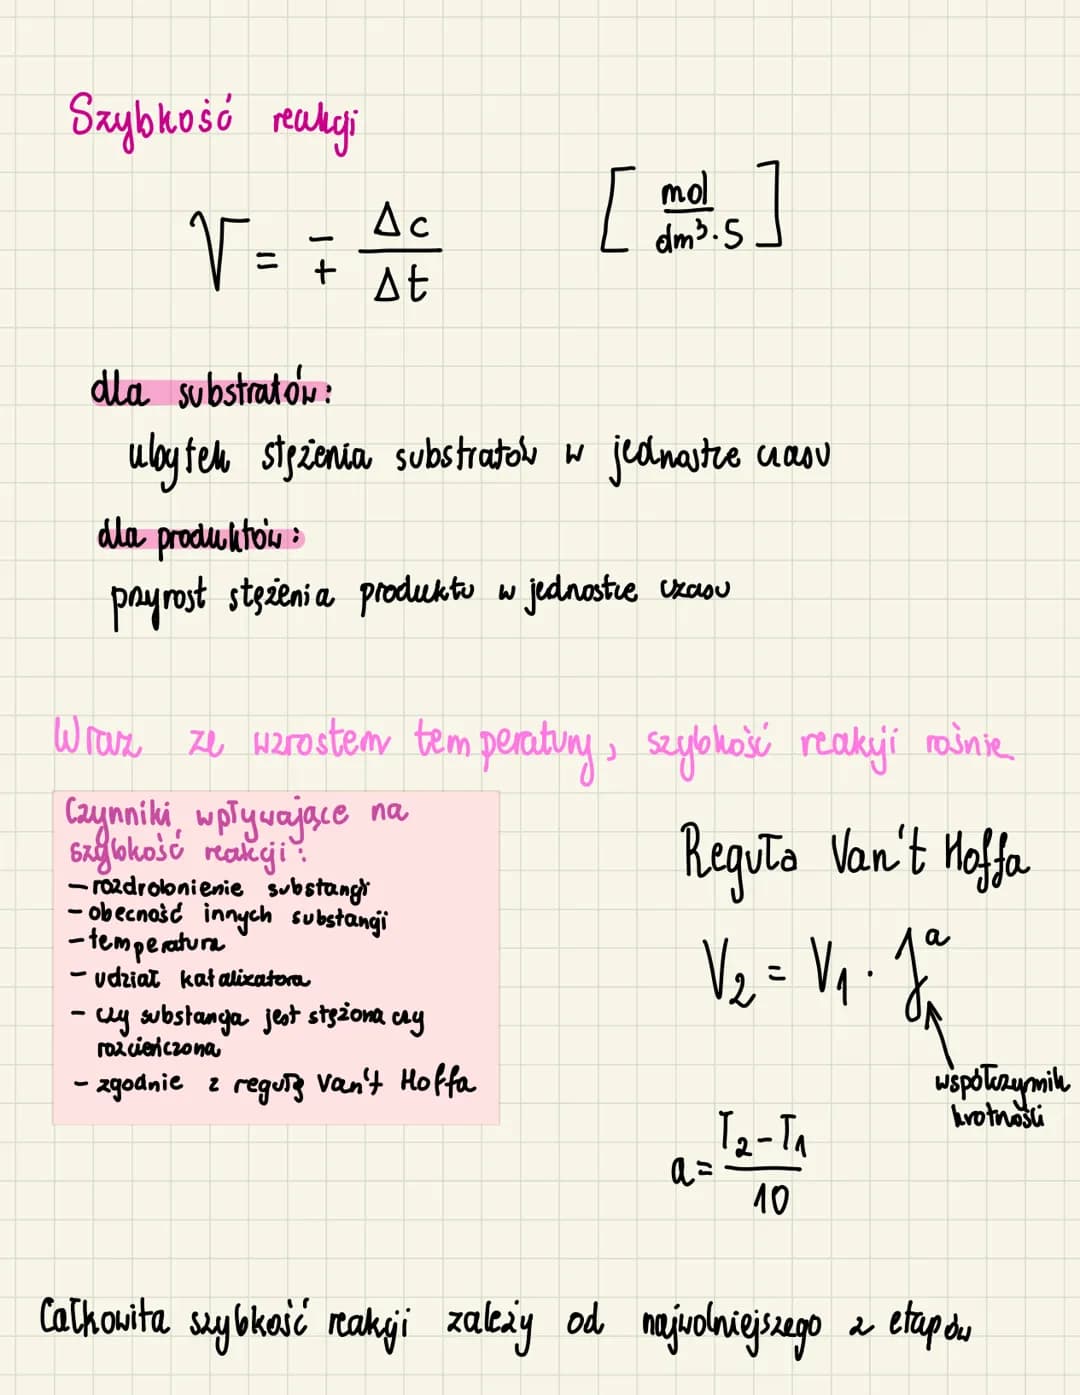 Szybkość reakcji
V = -/+ Δc/Δt [mol/dm³·s]
dla substratów:
ubytek stężenia substratów w jednostce czasu
dla produktów:
przyrost stężenia produktu w jednostce czasu
Wraz ze wzrostem temperatury, szybkość reakcji rośnie
Czynniki wpływające na
szybkość reakcji:
- rozdrobnienie substancji
- obecność innych substancji
- temperatura
- udział katalizatora
- czy substancja jest stężona czy
rozcieńczona
- zgodnie z regułą Van't Hoffa
Reguła Van't Hoffa
V₂ = V₁ · γᵃ
współczynnik
krotności
a = T₂-T₁/10
Całkowita szybkość reakcji zależy od najwolniejszego z etapów